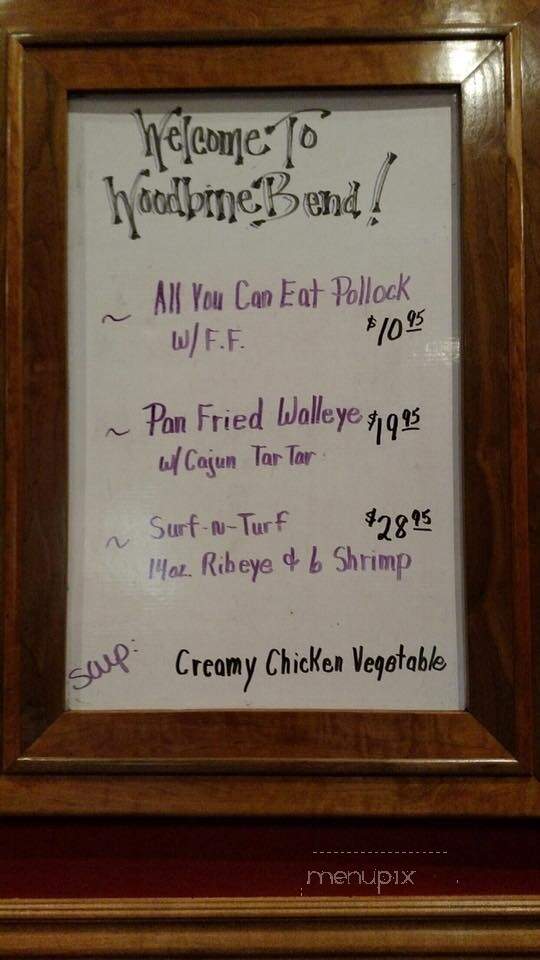 Welcome To
Woodbine Bend!
~ All You Can Eat Pollock
w/ F.F. $10 95
~ Pan Fried Walleye $19 95
w/ Cajun Tar Tar
~ Surf-n-Turf $28 95
14oz. Ribeye & 6 Shrimp
Soup: Creamy Chicken Vegetable
menupix